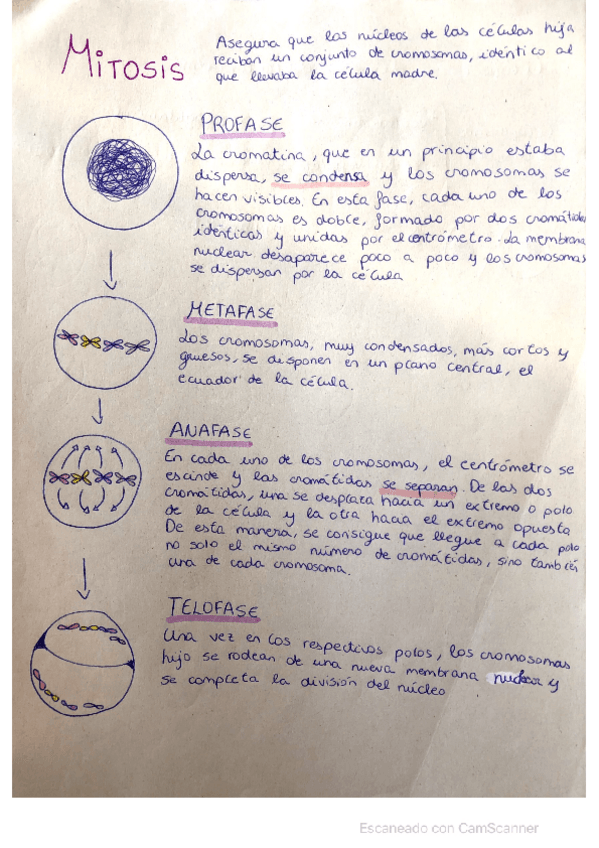 MITOSIS
Asegura que los núcleos de las células hija
reciban un conjunto de cromosomas, idéntico al
que llevaba la célula madre.
PROFASE
La cromatina, que en un principio estaba
dispersa, se condensa y los cromosomas se
hacen visibles. En esta fase, cada uno de los
cromosomas es doble, formado por dos cromátidas
idénticas y unidas por el centrómetro. La membrana
nuclear desaparece poco a poco y los cromosomas
se dispersan por la célula
METAFASE
Los cromosomas, muy condensados, más cortos y
gruesos, se disponen en un plano central, el
ecuador de la célula.
ANAFASE
En cada uno de los cromosomas, el centrómetro se
escinde y las cromátidas se separan. De las dos
cromátidas, una se desplaza hacia un extremo o polo
de la célula y la otra hacia el extremo opuesta
De esta manera, se consigue que llegue a cada polo
no solo el mismo número de cromátidas, sino también
una de cada cromosoma.
TELOFASE
Una vez en los respectivos polos, los cromosomas
hijo se rodean de una nueva membrana nuclear y
se completa la división del núcleo
Escaneado con CamScanner